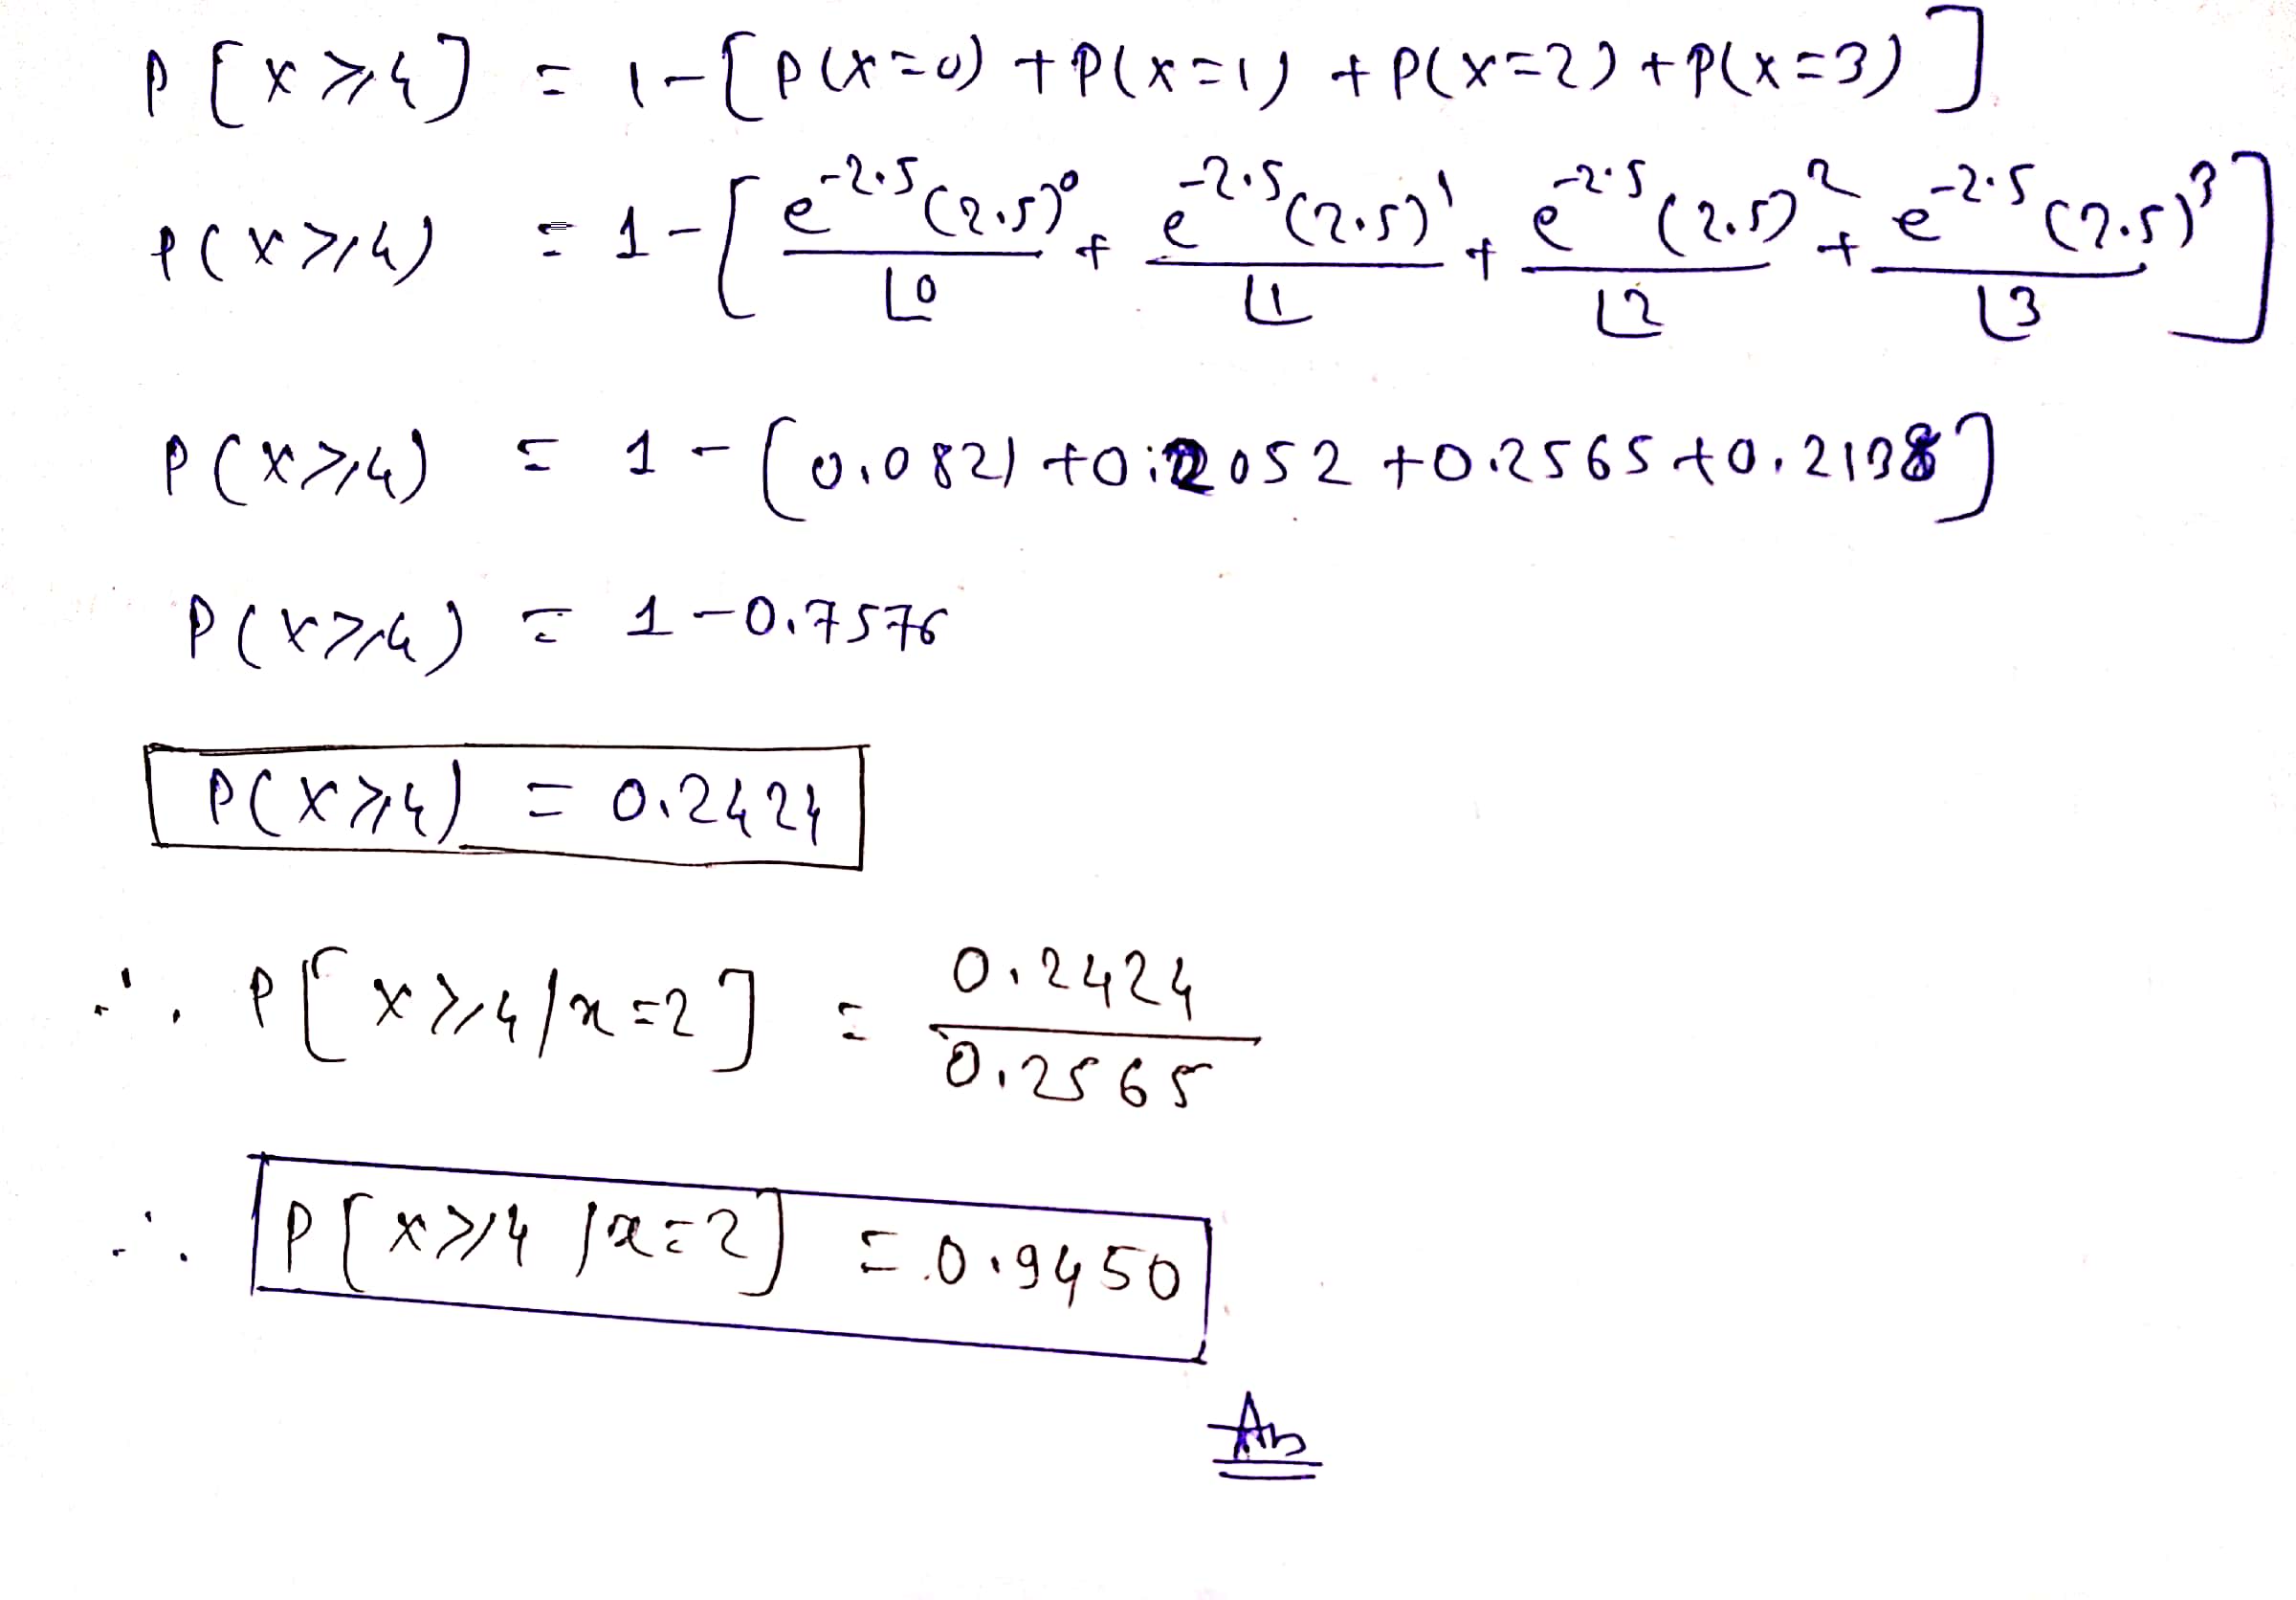 P[X⩾4] = 1-[P(X=0)+P(X=1)+P(X=2)+P(X=3)]
P(X⩾4) = 1-[e^-2.5(2.5)^0/⌊0 + e^-2.5(2.5)^1/⌊1 + e^-2.5(2.5)^2/⌊2 + e^-2.5(2.5)^3/⌊3]
P(X⩾4) = 1-(0.0821+0.2052+0.2565+0.2138]
P(X⩾4) = 1-0.7576
P(X⩾4) = 0.2424
∴ P[X⩾4/x=2] = 0.2424/0.2565
∴ P[X⩾4/x=2] = 0.9450
Ans